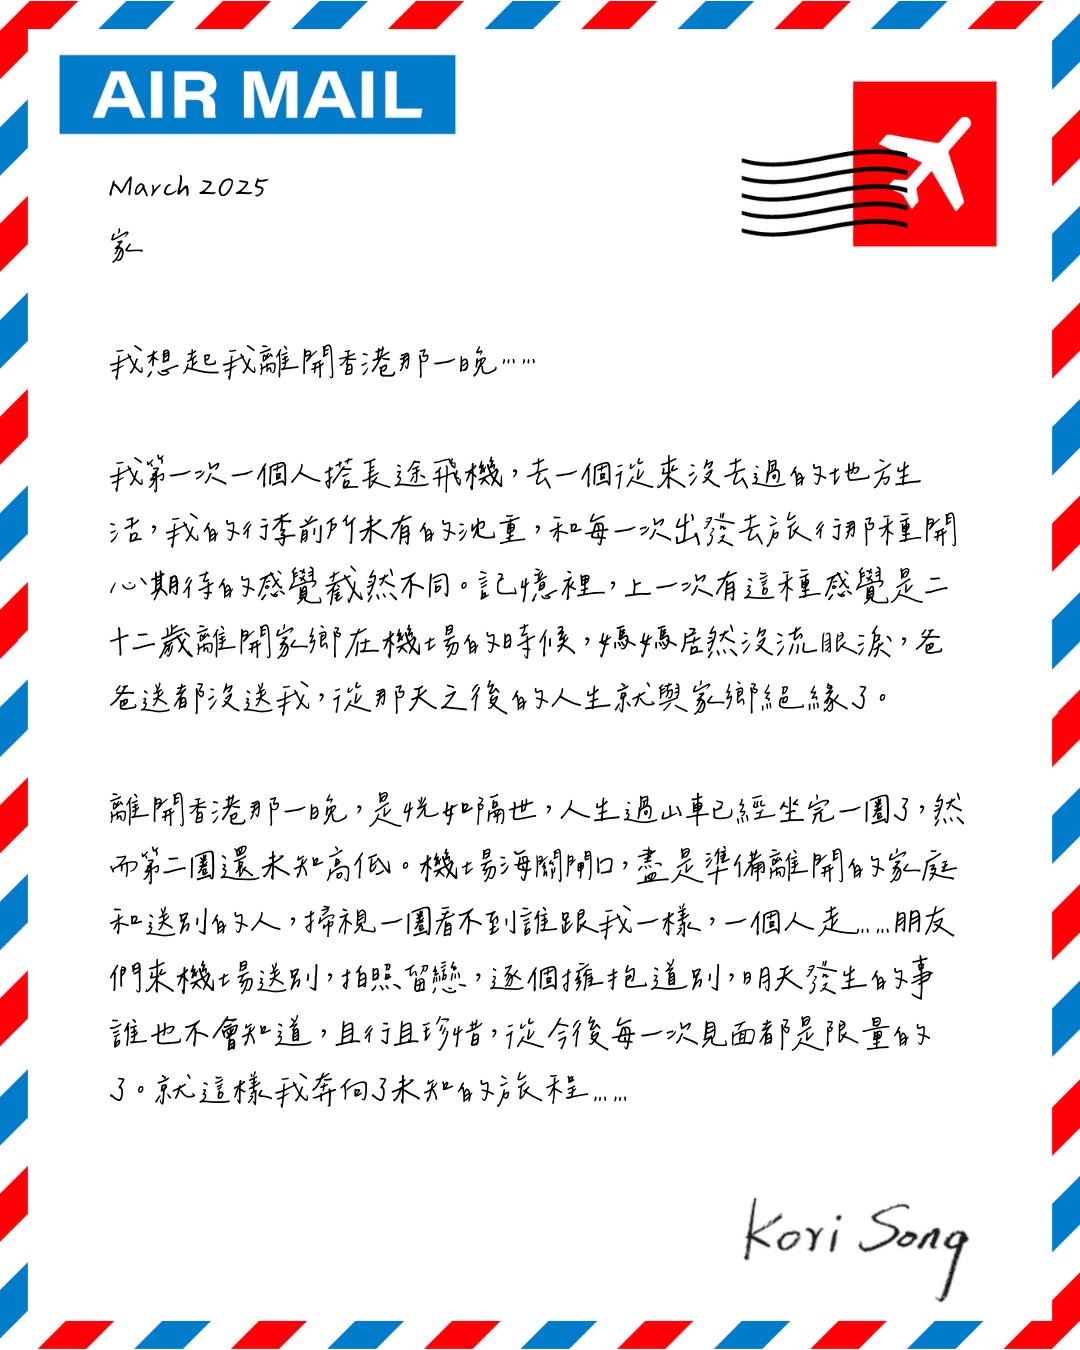 AIR MAIL
March 2025
家
我想起我離開香港那一晚……
我第一次一個人搭長途飛機，去一個從來沒去過的地方生
活，我的行李前所未有的沈重，和每一次出發去旅行那種開
心期待的感覺截然不同。記憶裡，上一次有這種感覺是二
十二歲離開家鄉在機場的時候，媽媽居然沒流眼淚，爸
爸送都沒送我，從那天之後的人生就與家鄉絕緣了。
離開香港那一晚，是恍如隔世，人生過山車已經坐完一圈了，然
而第二圈還未知高低。機場海關閘口，盡是準備離開的家庭
和送別的人，掃視一圈看不到誰跟我一樣，一個人走……朋友
們來機場送別，拍照留戀，逐個擁抱道別，明天發生的事
誰也不會知道，且行且珍惜，從今後每一次見面都是限量的
了。就這樣我奔向了未知的旅程……
Kori Song